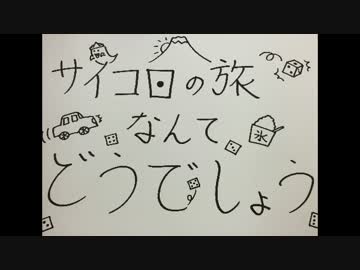 サイコロの旅
なんて
氷
どうでしょう